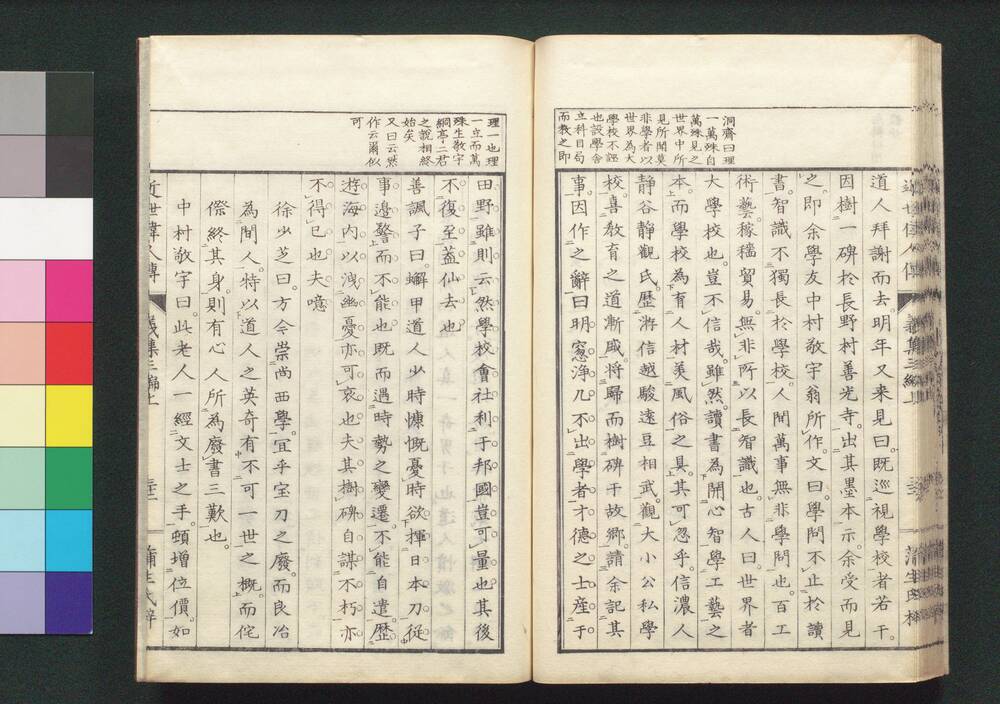 洞齋曰理
一萬殊自
萬殊見之
世界中所
見所聞莫
非學者以
世界為大
學校不誣
也設學舍
立科目局
而敎之即
道人拜謝而去。明年又來見曰。既巡視學校者若干。
因樹一碑於長野村善光寺。出其墨本示余受而見
之即余學友中村敬宇翁所作文曰。學問不止於讀
書。智識不獨長於學校。人間萬事無非學問也。百工
術藝。稼穡貿易。無非所以長智識也。古人曰。世界者
大學校也。豈不信哉。雖然讀書為開心智學工藝之
本。而學校為育人材美風俗之具。其可忽乎。信濃人
靜谷靜觀氏。歷游信越駿遠豆相武。觀大小公私學
校。喜敎育之道漸盛。將歸而樹碑于故鄉。請余記其
事。因作之辭曰。明窓淨几。不出學者才德之士。産于
理一也理
一立而萬
殊生敬宇
絅亭二君
之說相終
始矣
又曰云然
作云爾似
可
田野。雖則云然。學校會社利于邦國。豈可量也。其後
不復至。蓋仙去也。
善諷子曰。蠏甲道人少時慷慨憂時欲揮日本刀從
事邊警而不能也。既而遇時勢之變遷。不能自遣。歷
遊海內以洩幽憂。亦可哀也夫。其樹碑自謀不朽。亦
不得已也夫噫
徐少芝曰。方今崇尚西學。宜乎宝刀之廢。而良冶
為間人。特以道人之英奇有不可一世之概。而侘
傺終其身。則有心人所為廢書三歎也。
中村敬宇曰。此老人一經文士之手。頓增位價。如
近世偉人傳
義集三編上
蒲生氏梓